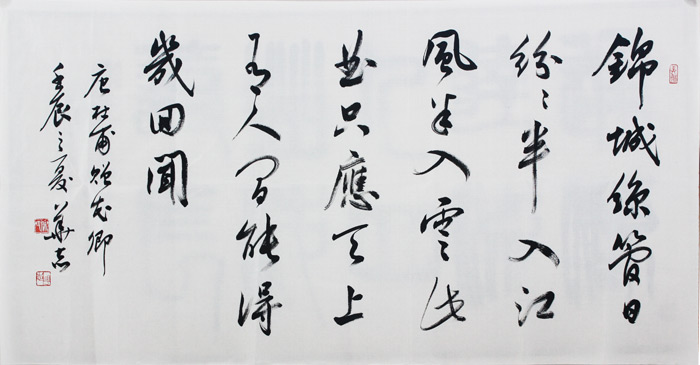 錦城絲管日
紛〻半入江
風半入雲此
曲只應天上
有人间能得
幾回聞
唐杜甫贈花卿
壬辰之夏 華志